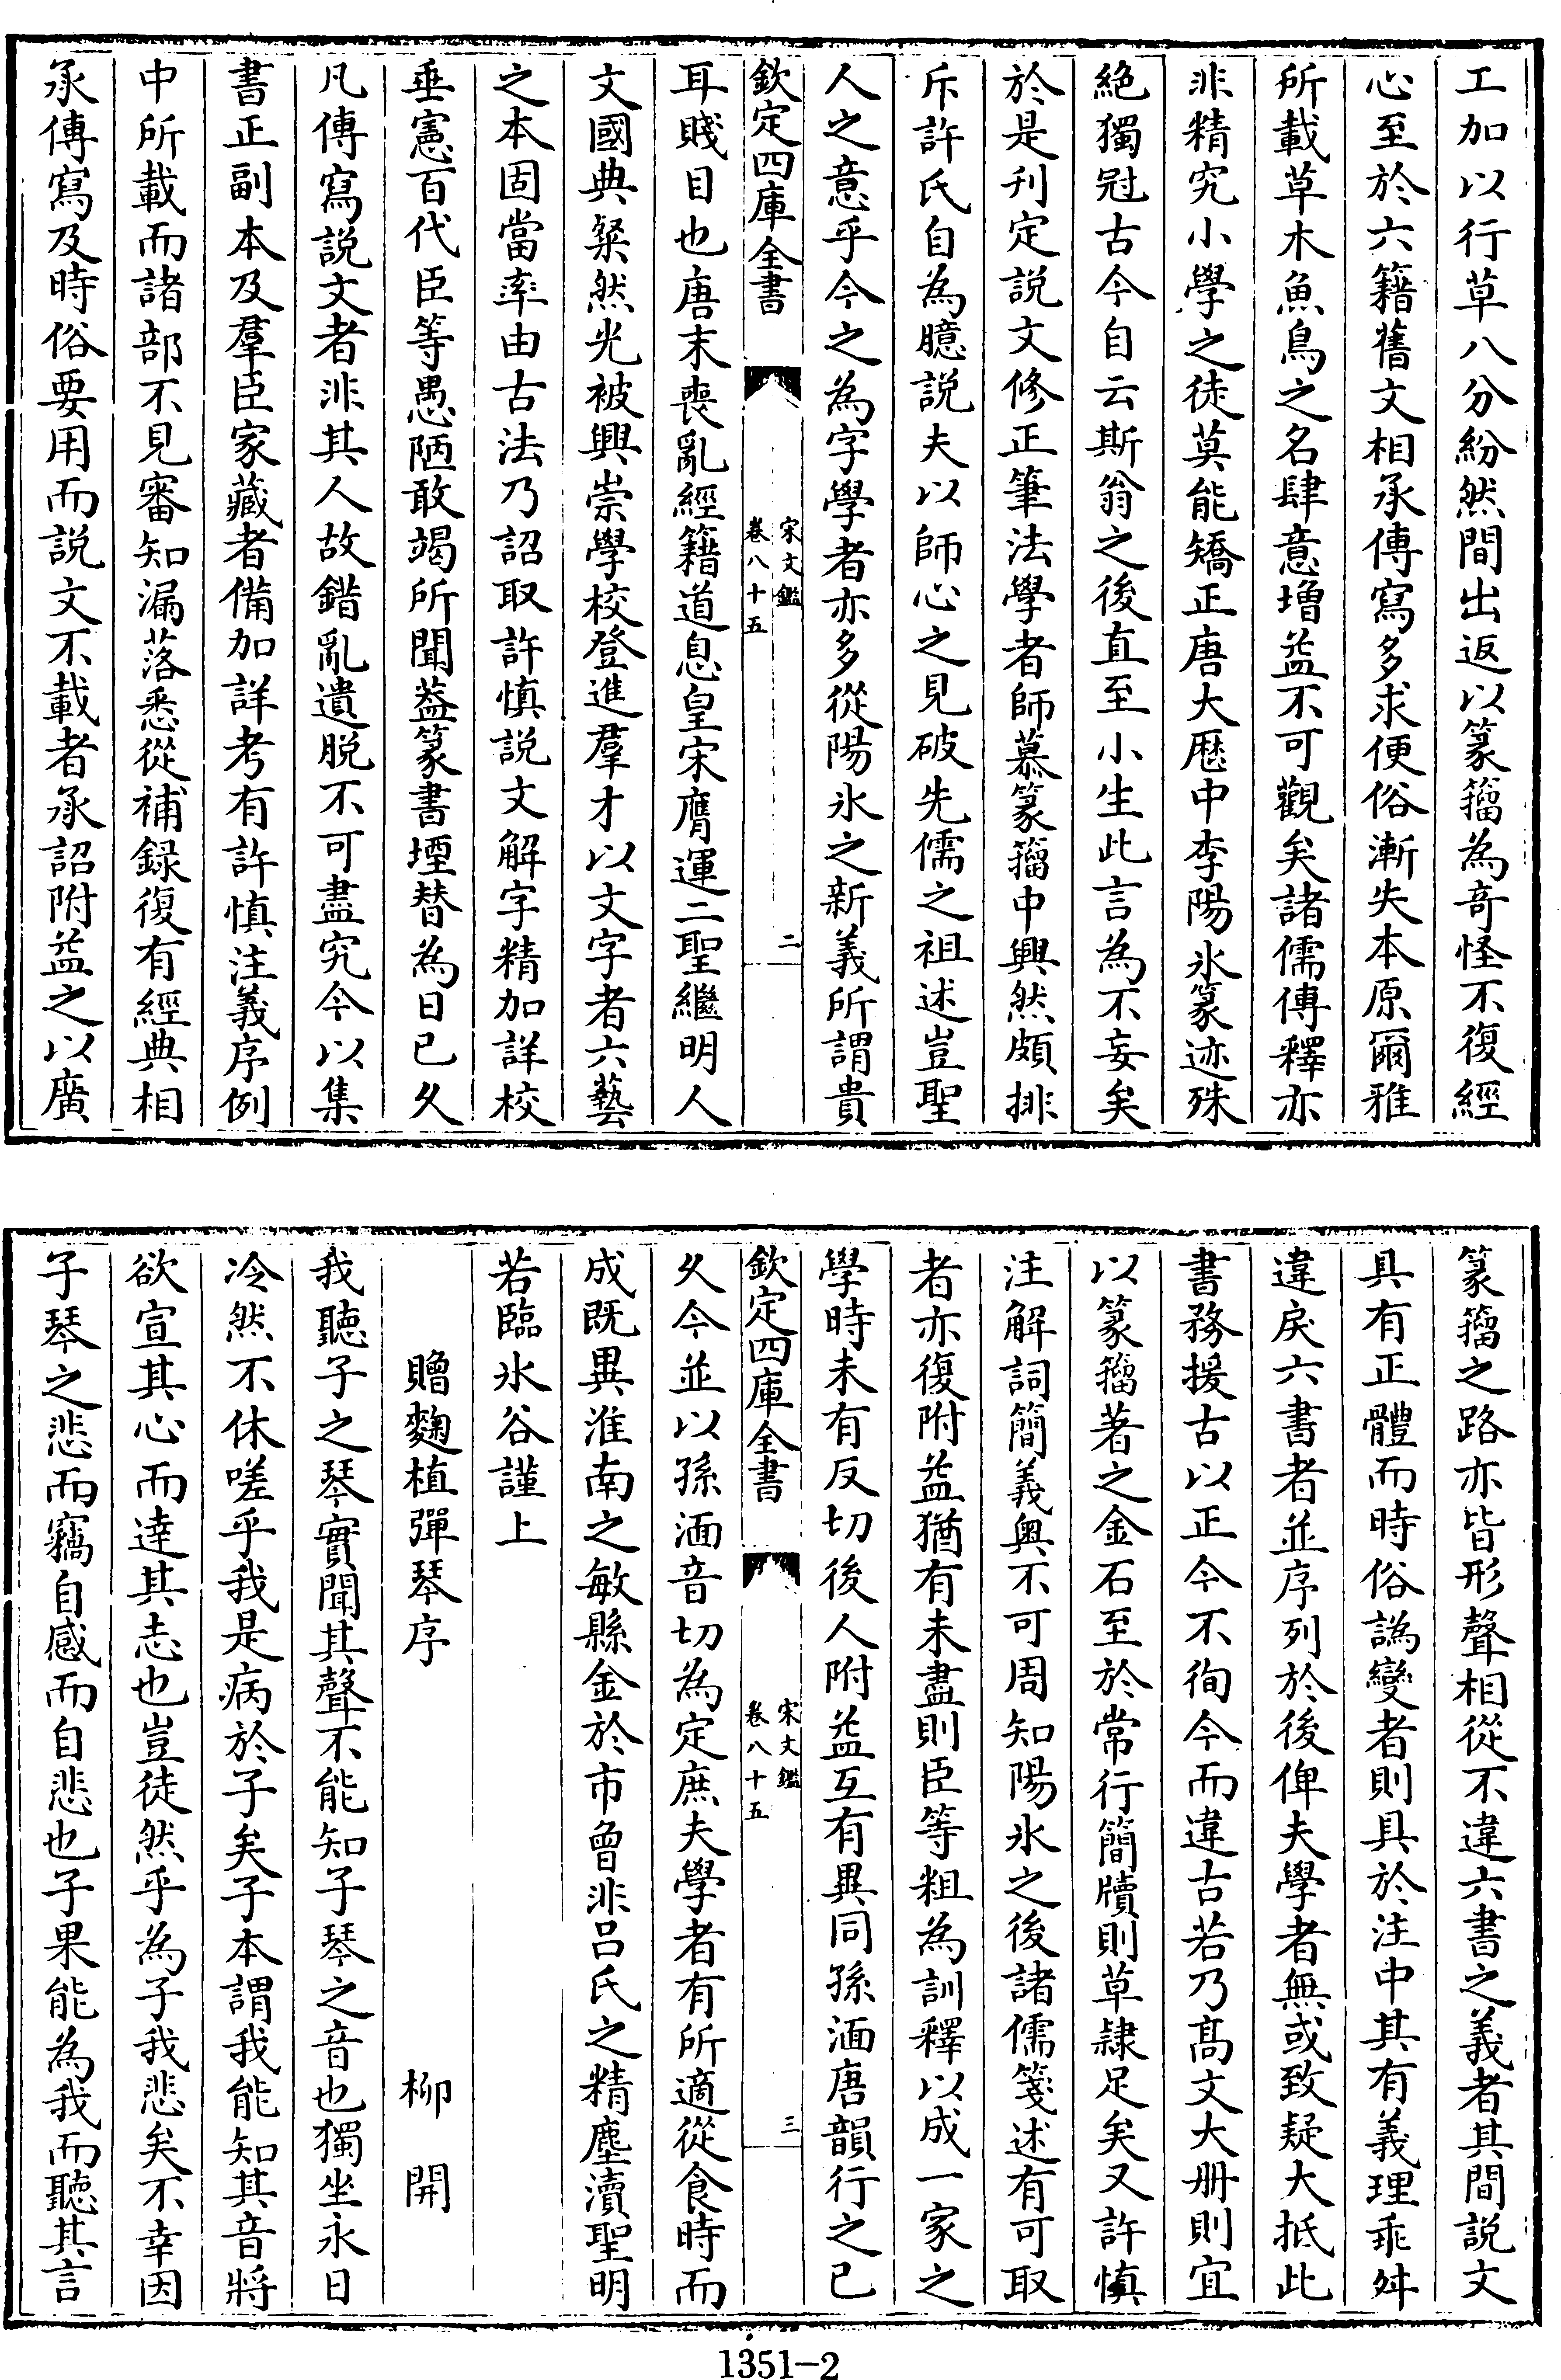 工加以行草八分紛然間出返以篆籀為奇怪不復經
心至於六籍舊文相承傳寫多求便俗漸失本原爾雅
所載草木魚鳥之名肆意增益不可觀矣諸儒傳釋亦
非精究小學之徒莫能矯正唐大厯中李陽氷篆迹殊
絶獨冠古今自云斯翁之後直至小生此言為不妄矣
於是刋定説文修正筆法學者師慕篆籀中興然頗排
斥許氏自為臆説夫以師心之見破先儒之祖述豈聖
人之意乎今之為字學者亦多從陽氷之新義所謂貴
欽定四庫全書
宋文鑑
卷八十五
二
耳賤目也唐末喪亂經籍道息皇宋膺運二聖繼明人
文國典粲然光被興崇學校登進羣才以文字者六藝
之本固當率由古法乃詔取許慎説文解字精加詳校
垂憲百代臣等愚陋敢竭所聞葢篆書堙替為日已久
凡傳寫説文者非其人故錯亂遺脱不可盡究今以集
書正副本及羣臣家藏者備加詳考有許慎注義序例
中所載而諸部不見審知漏落悉從補録復有經典相
承傳寫及時俗要用而説文不載者承詔附益之以廣
篆籀之路亦皆形聲相從不違六書之義者其間説文
具有正體而時俗譌變者則具於注中其有義理乖舛
違戾六書者並序列於後俾夫學者無或致疑大抵此
書務援古以正今不徇今而違古若乃髙文大册則宜
以篆籀著之金石至於常行簡牘則草隷足矣又許慎
注解詞簡義奥不可周知陽氷之後諸儒箋述有可取
者亦復附益猶有未盡則臣等粗為訓釋以成一家之
學時未有反切後人附益互有異同孫湎唐韻行之已
欽定四庫全書
宋文鑑
卷八十五
三
久今並以孫湎音切為定庶夫學者有所適從食時而
成既異淮南之敏縣金於市曾非吕氏之精塵瀆聖明
若臨氷谷謹上
贈麴植彈琴序　柳開
我聽子之琴實聞其聲不能知子琴之音也獨坐永日
冷然不休嗟乎我是病於子矣子本謂我能知其音將
欲宣其心而達其志也豈徒然乎為子我悲矣不幸因
子琴之悲而竊自感而自悲也子果能為我而聽其言
1351-2